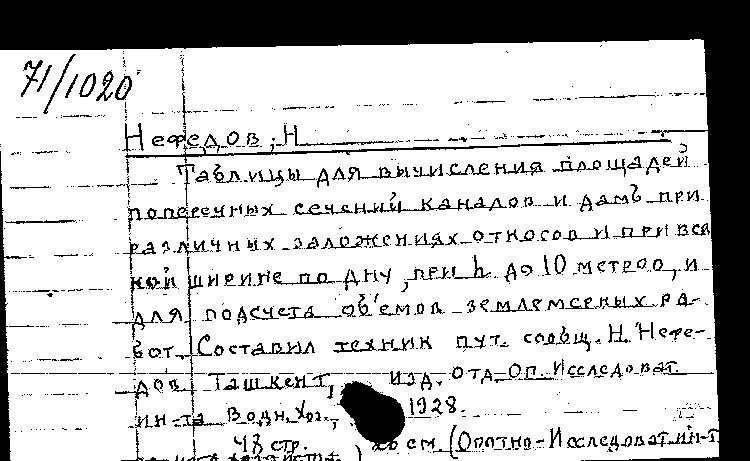 71/1020
Нефедов, Н
Таблицы для вычисления площадей
поперечных сечений каналов и дамб при
различных заложениях откосов и при вся
кой ширине по дну, при h до 10 метров, и
для подсчета об'емов землемерных ра-
бот. Составил техник пут. сообщ. Н. Нефе-
дов Ташкент, изд. Отд. Оп. Исследоват.
ин-та Водн. Хоз., 1928.
48 стр. см. (Опытно-Исследоват. ин-т